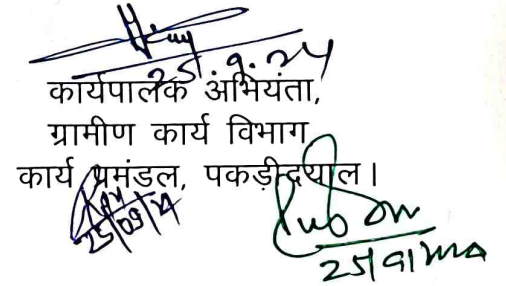 25.9.24
कार्यपालक अभियंता,
ग्रामीण कार्य विभाग
कार्य प्रमंडल, पकड़ीदयाल।
25/09/24